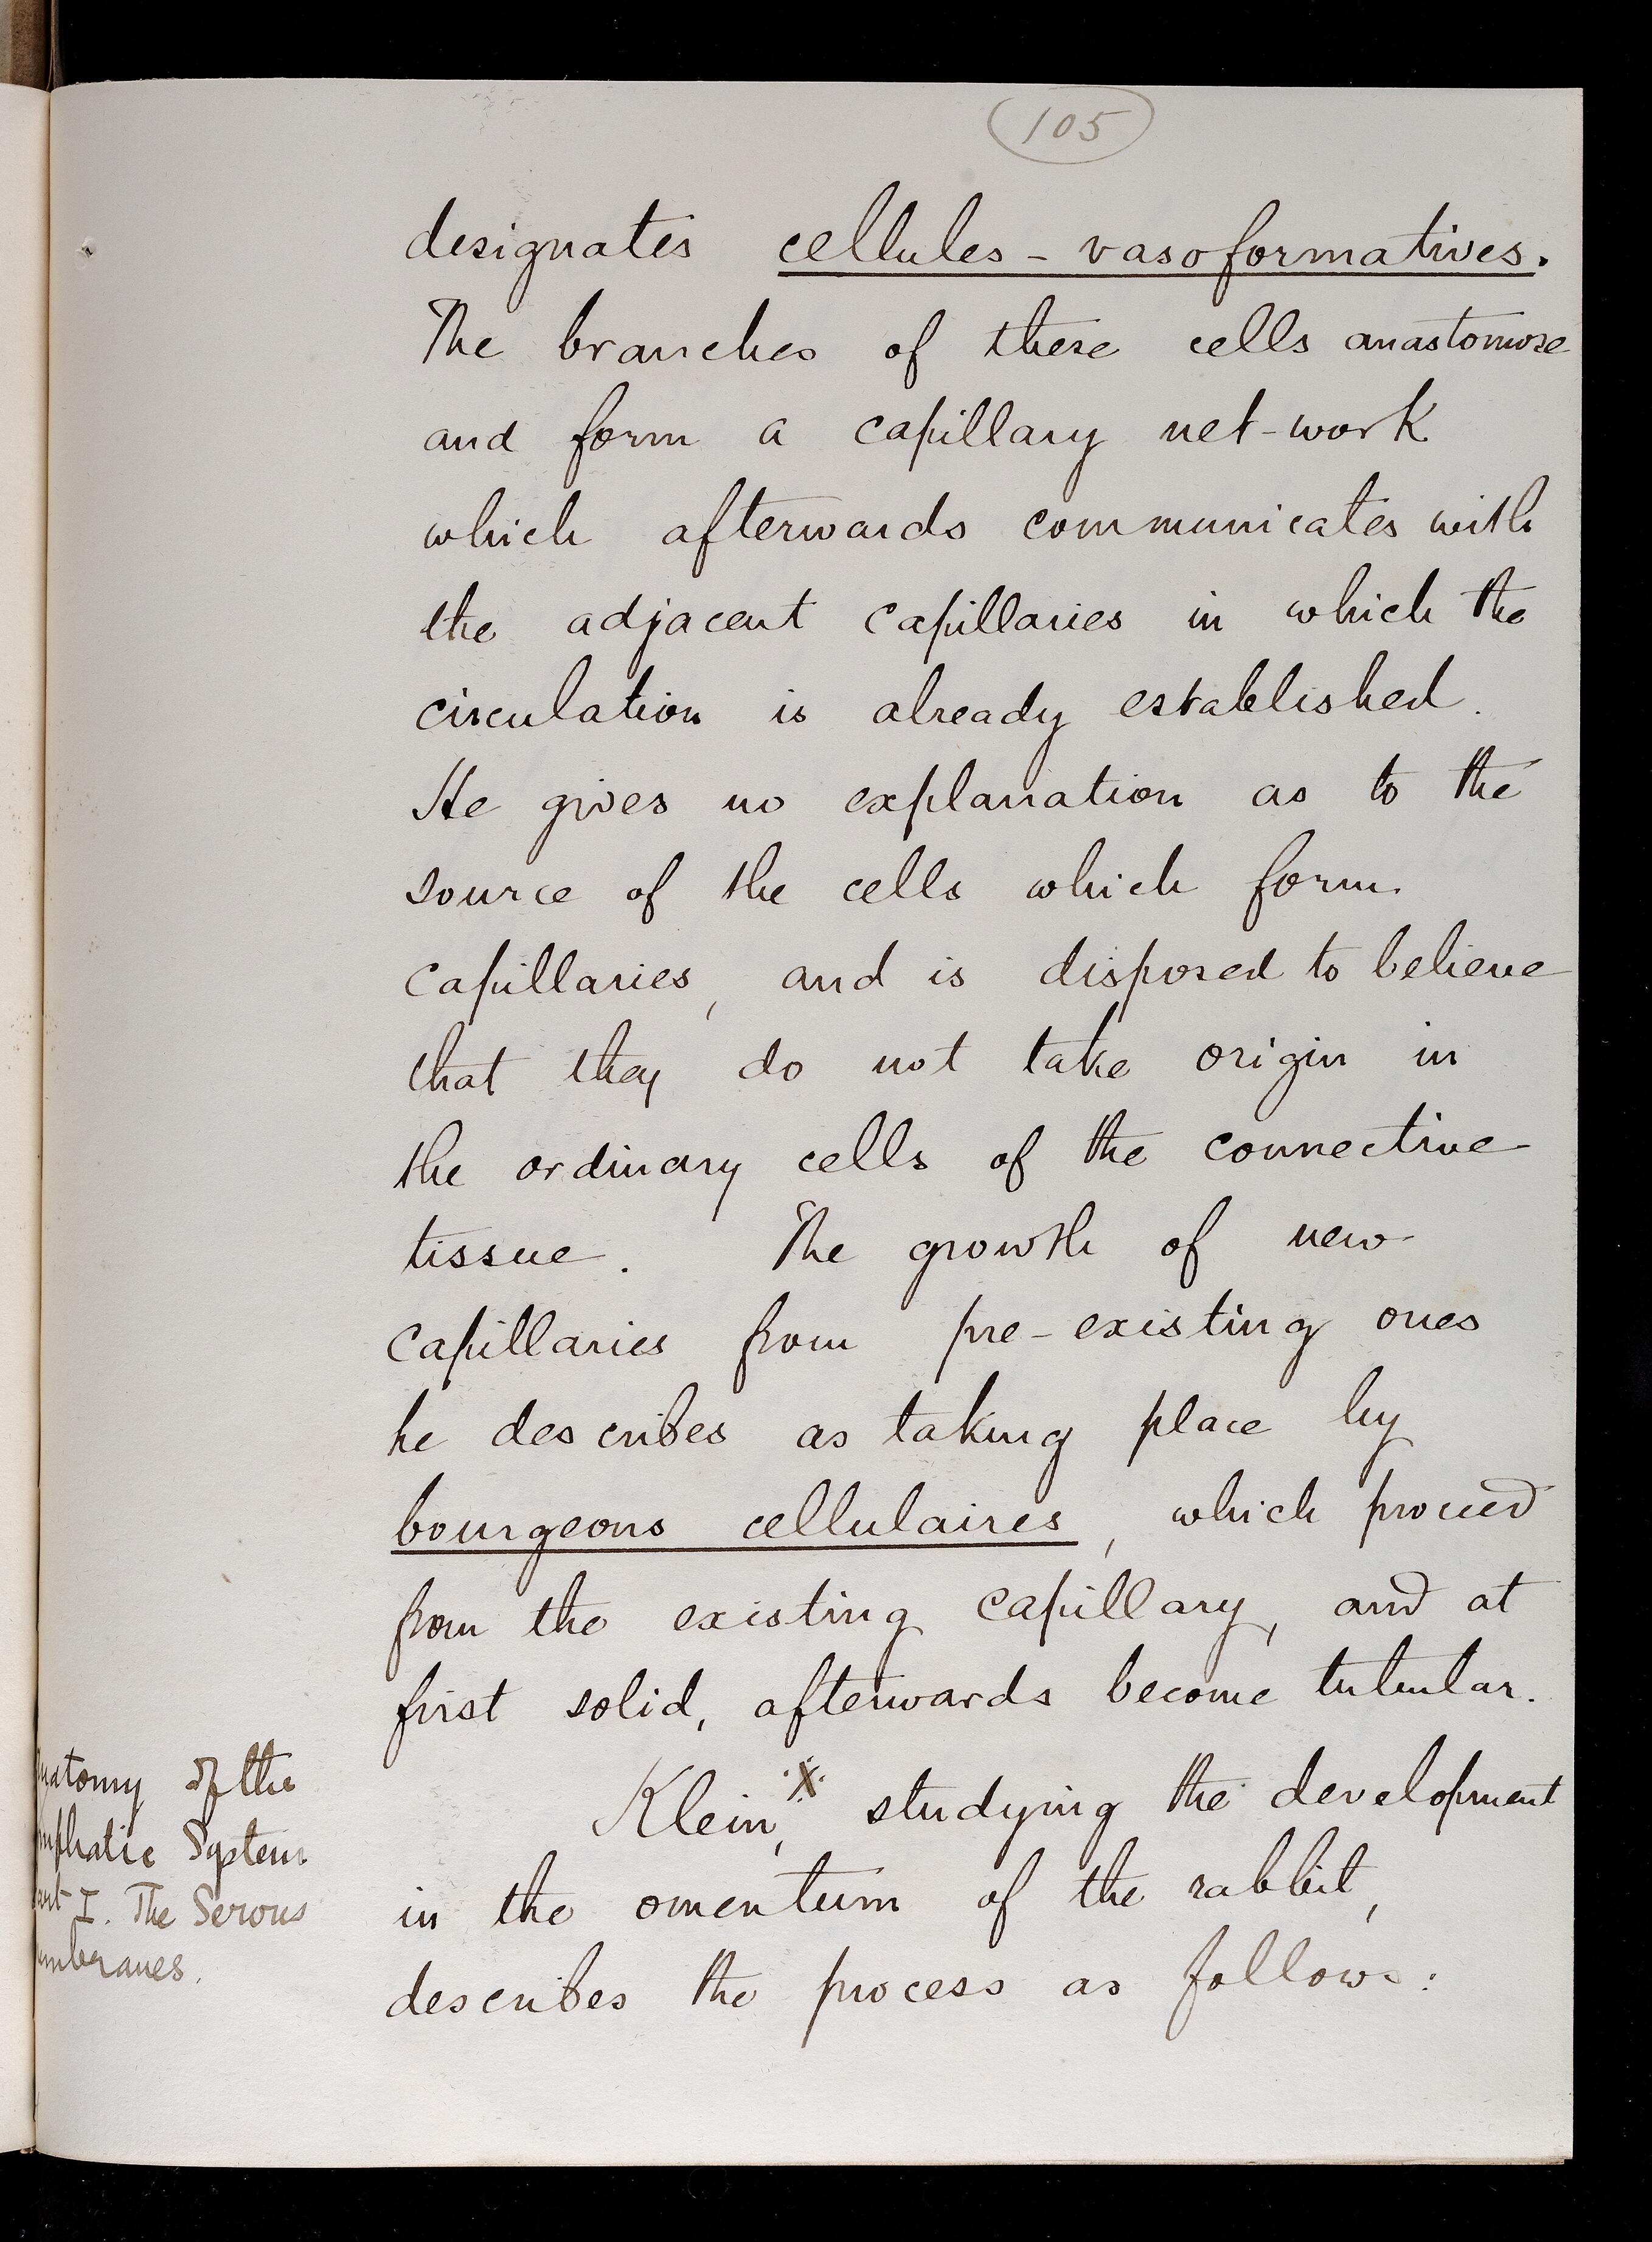 105
designates cellules - vasoformatives.
The branches of these cells anastomose
and form a capillary net-work
which afterwards communicates with
the adjacent capillaries in which the
circulation is already established.
He gives no explanation as to the
source of the cells which form
capillaries, and is disposed to believe
that they do not take origin in
the ordinary cells of the connective
tissue. The growth of new
capillaries from pre-existing ones
he describes as taking place by
bourgeons cellulaires, which proceed
from the existing capillary, and at
first solid, afterwards become tubular.
Klein,* studying the development
in the omentum of the rabbit,
describes the process as follows:
natomy of the
mphatic System
art I. The Serous
embranes.